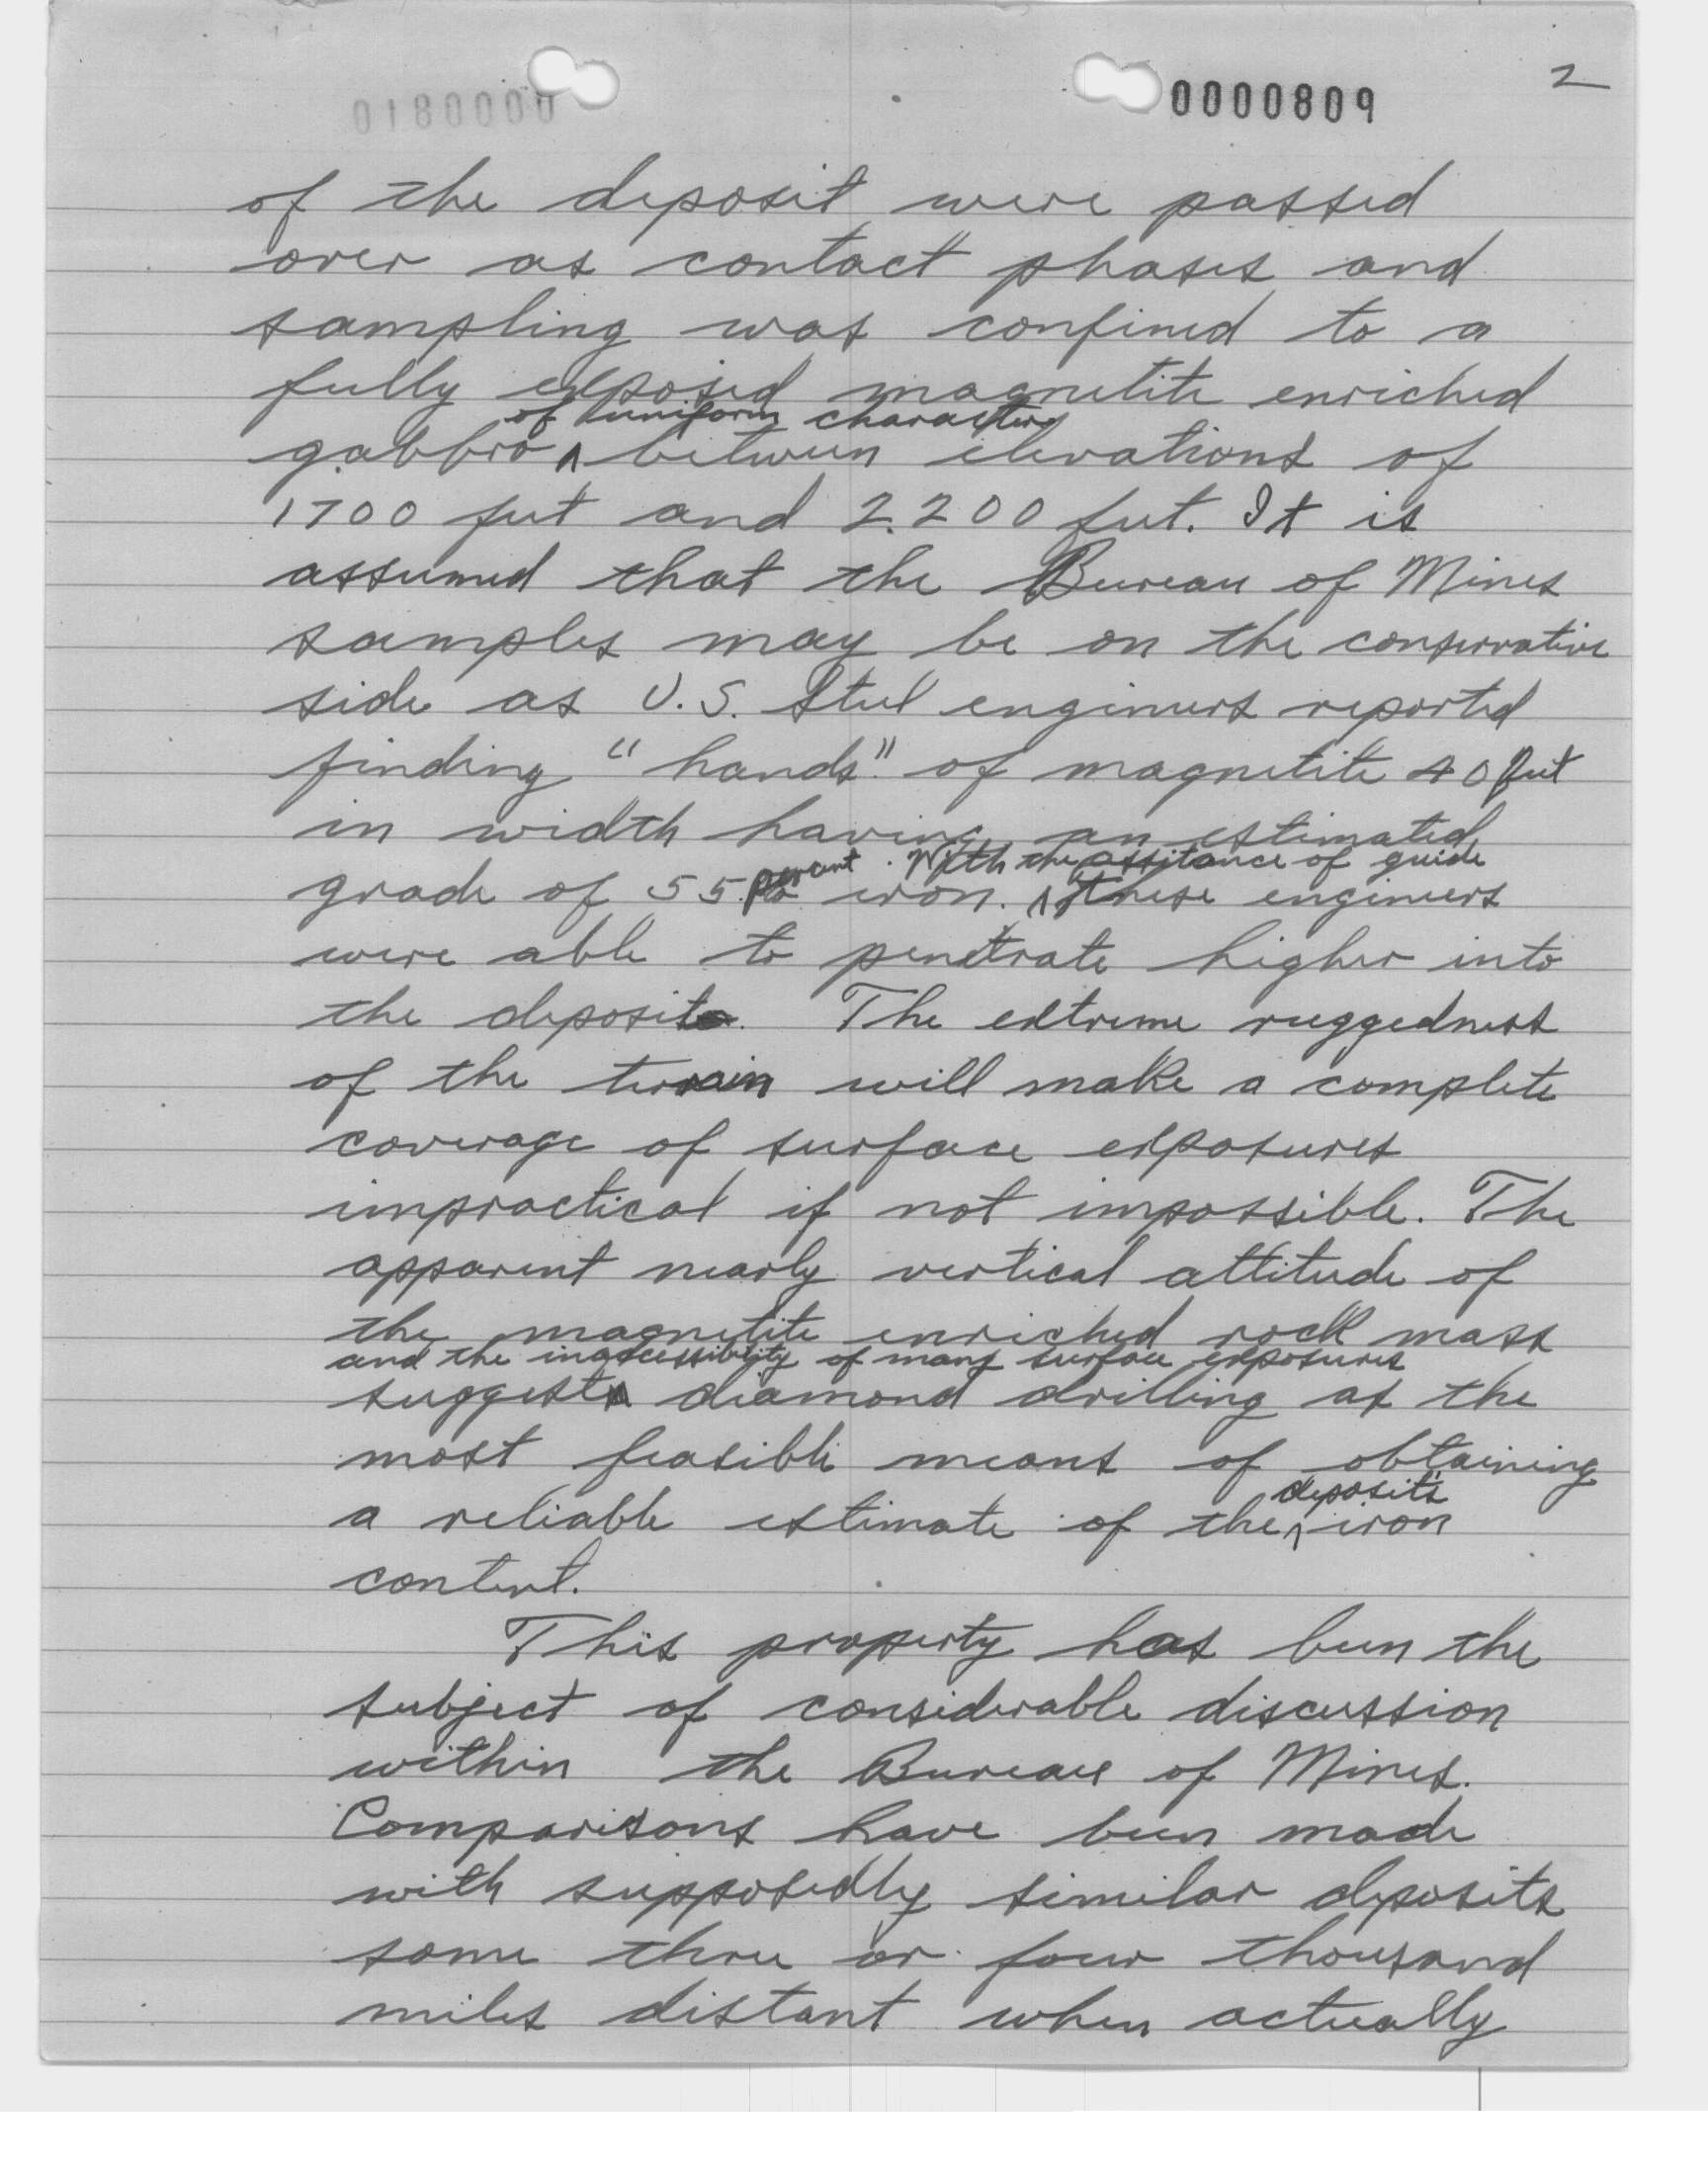 2
0180000
0000809
of the deposit were passed
over as contact phases and
sampling was confined to a
fully exposed magnetite enriched
of uniform character
gabbro ^ between elevations of
1700 feet and 2200 feet. It is
assumed that the Bureau of Mines
samples may be on the conservative
side as U.S. Steel engineers reported
finding "bands" of magnetite 40 feet
in width having an estimated
percent . With the assitance of guide
grade of 55 iron. ^ these engineers
were able to penetrate higher into
the deposit. The extreme ruggedness
of the terrain will make a complete
coverage of surface exposures
impractical if not impossible. The
apparent nearly vertical attitude of
the magnetite enriched rock mass
and the inaccessibility of many surface exposures
suggest ^ diamond drilling as the
most feasible means of obtaining
deposits
a reliable estimate of the ^ iron
content.
This property has been the
subject of considerable discussion
within the Bureau of Mines.
Comparisons have been made
with supposedly similar deposits
some three or four thousand
miles distant when actually